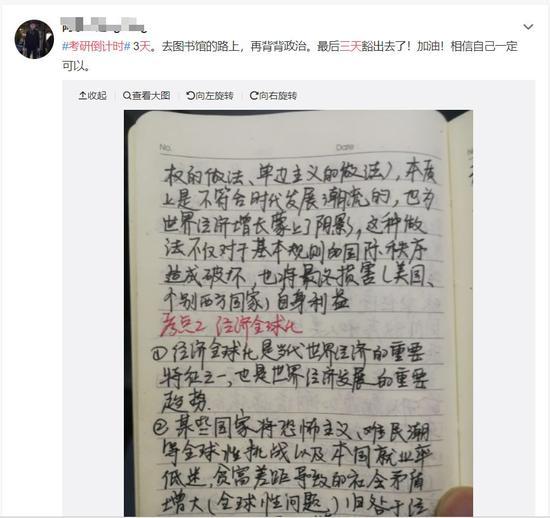 #考研倒计时# 3天。去图书馆的路上，再背背政治。最后三天豁出去了！加油！相信自己一定
可以。
收起 查看大图 向左旋转 向右旋转
No. Date
权的做法、单边主义的做法），本质
上是不符合时代发展潮流的，也为
世界经济增长蒙上了阴影，这种做
法不仅对于基本规则的国际秩序
造成破坏，也将最终损害（美国、
个别西方国家）自身利益
考点2 经济全球化
①经济全球化是当代世界经济的重要
特征之一，也是世界经济发展的重要
趋势.
②某些国家将恐怖主义、难民潮
等全球性挑战以及本国就业率
低迷，贫富差距导致的社会矛盾
增大（全球性问题）归咎于经